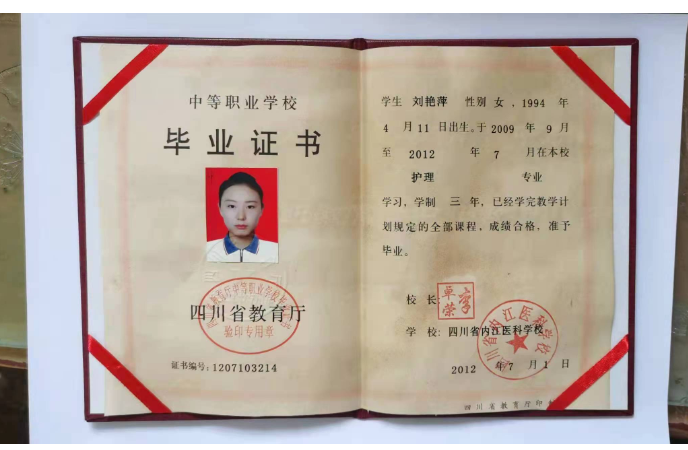 中等职业学校
毕业证书
四川省教育厅
验印专用章
证书编号：1207103214
学生 刘艳萍 性别 女 ，1994 年
4 月 11 日出生。于 2009 年 9 月
至 2012 年 7 月在本校
护理 专业
学习，学制 三 年，已经学完教学计
划规定的全部课程，成绩合格，准予
毕业。
校 长：
学 校：四川省内江医科学校
四川省内江医科学校
2012 年 7 月 1 日
四川省教育厅印